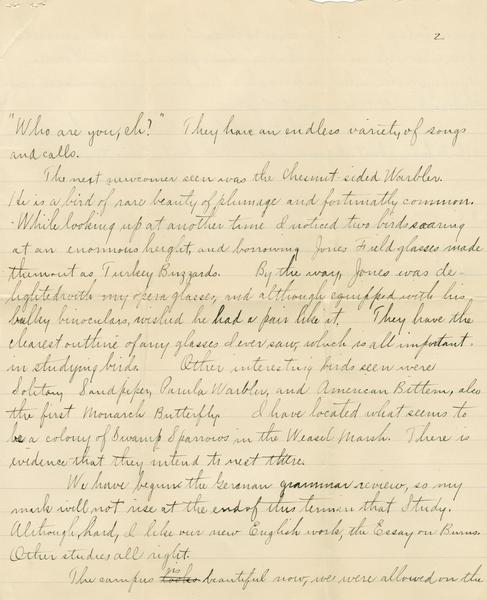 2
"Who are you, eh?" They have an endless variety of songs
and calls.
The next newcomer seen was the Chesnut-sided Warbler.
He is a bird of rare beauty of plumage and fortunatly common.
While looking up at another time I noticed two birds soaring
at an enormous height, and borrowing Jones Field glasses made
them out as Turkey Buzzards. By the way, Jones was de-
lighted with my opera glasses, and although equipped with his
bulky binoculars, wished he had a pair like it. They have the
clearest outline of any glasses I ever saw, which is all important
in studying birds. Other interesting birds seen were
Solitary Sandpiper, Parula Warbler, and American Bittern, also
the first Monarch Butterfly. I have located what seems to
be a colony of Swamp Sparrows in the Weasel Marsh. There is
evidence that they intend to nest there.
We have begun the German grammar review, so my
mark will not rise at the end of this term in that Study.
Although, hard, I like our new English work, the Essay on Burns.
Other studies all right.
The campus looks is beautiful now, we were allowed on the